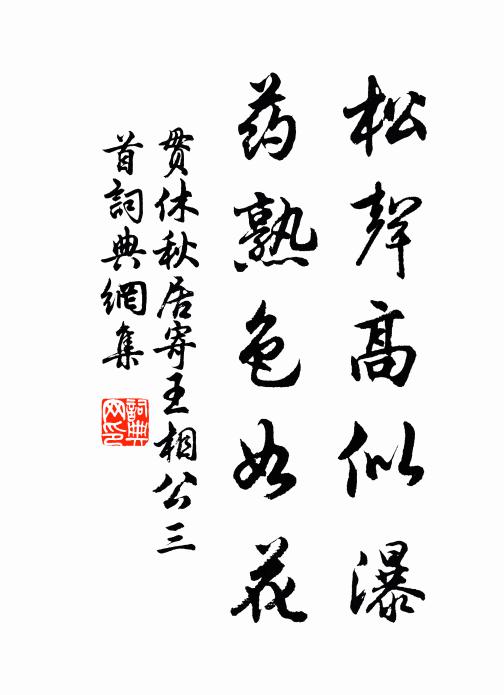 松聲高似瀑
药熟色如花
贯休秋居寄王相公三
首詞典網集
詞典
网印